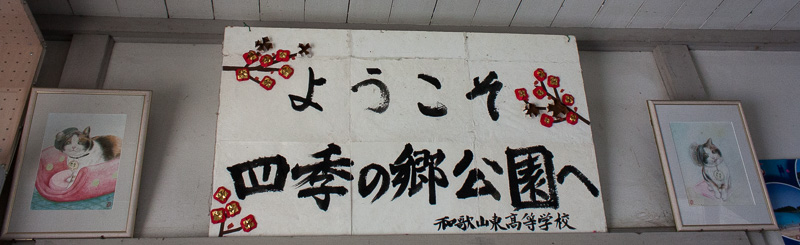 ようこそ
四季の郷公園へ
和歌山東高等学校